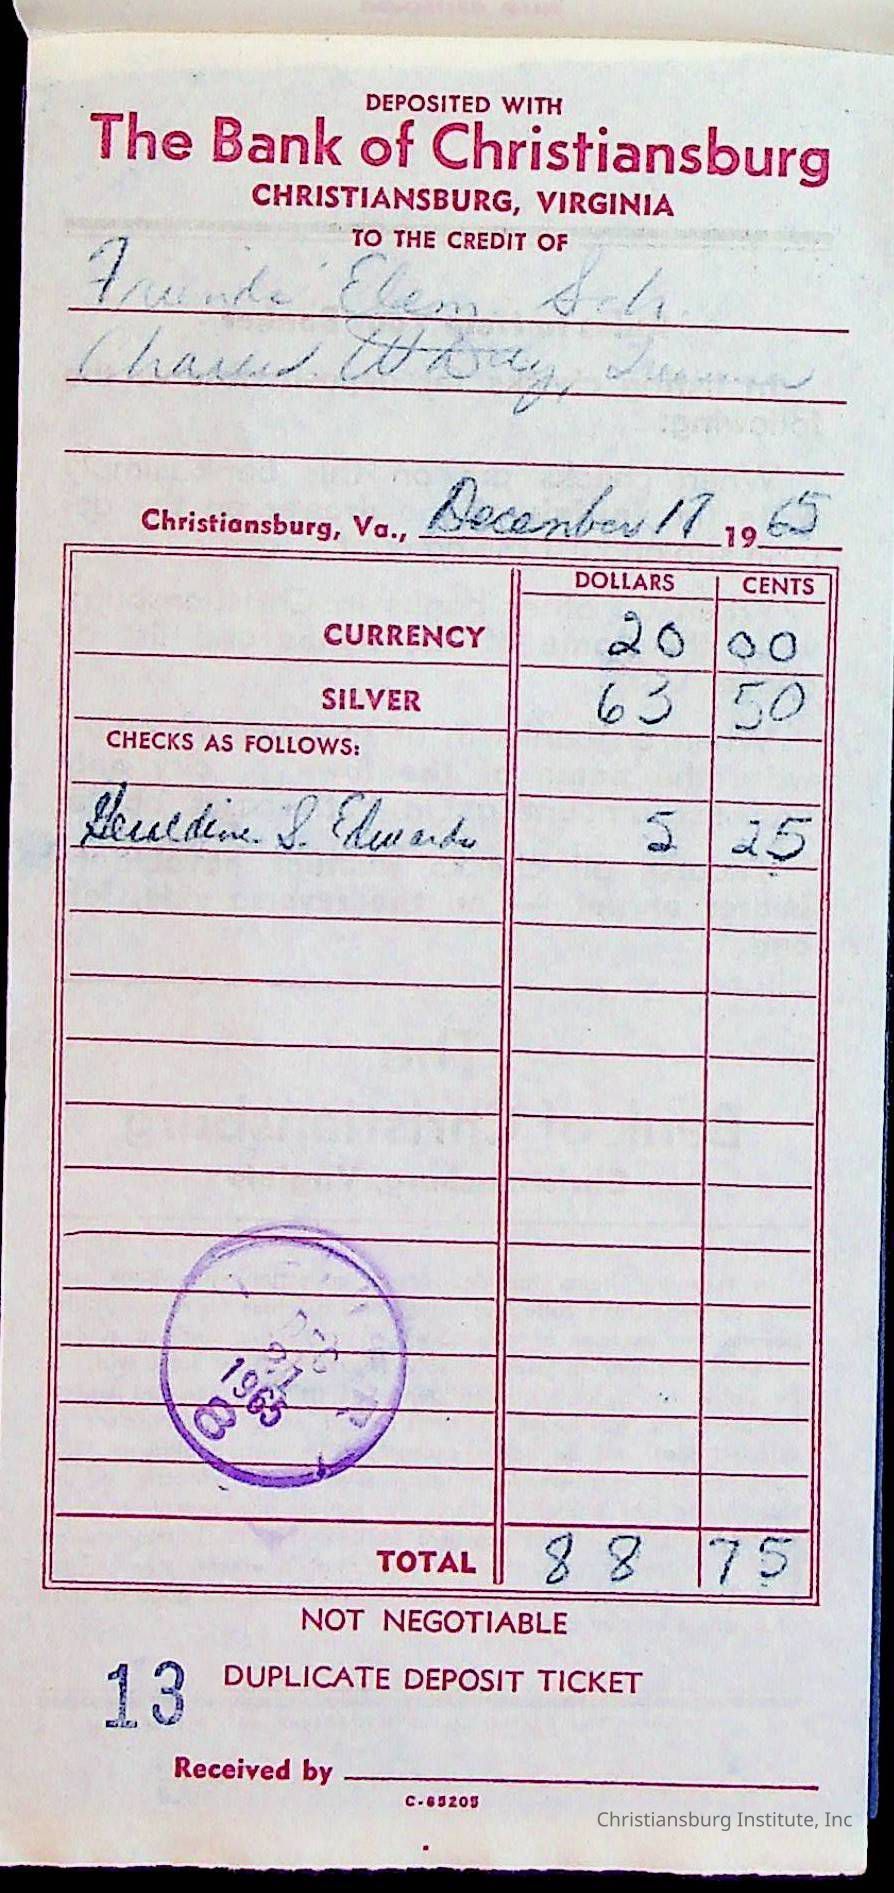 DEPOSITED WITH
The Bank of Christiansburg
CHRISTIANSBURG, VIRGINIA
TO THE CREDIT OF
Friends Elem. Sch.
Christiansburg, Va., December 17 19 65
DOLLARS CENTS
CURRENCY 20 00
SILVER 63 50
CHECKS AS FOLLOWS:
Geraldine S. Edwards 5 25
1965
TOTAL 88 75
NOT NEGOTIABLE
13 DUPLICATE DEPOSIT TICKET
Received by
C-65205
Christiansburg Institute, Inc